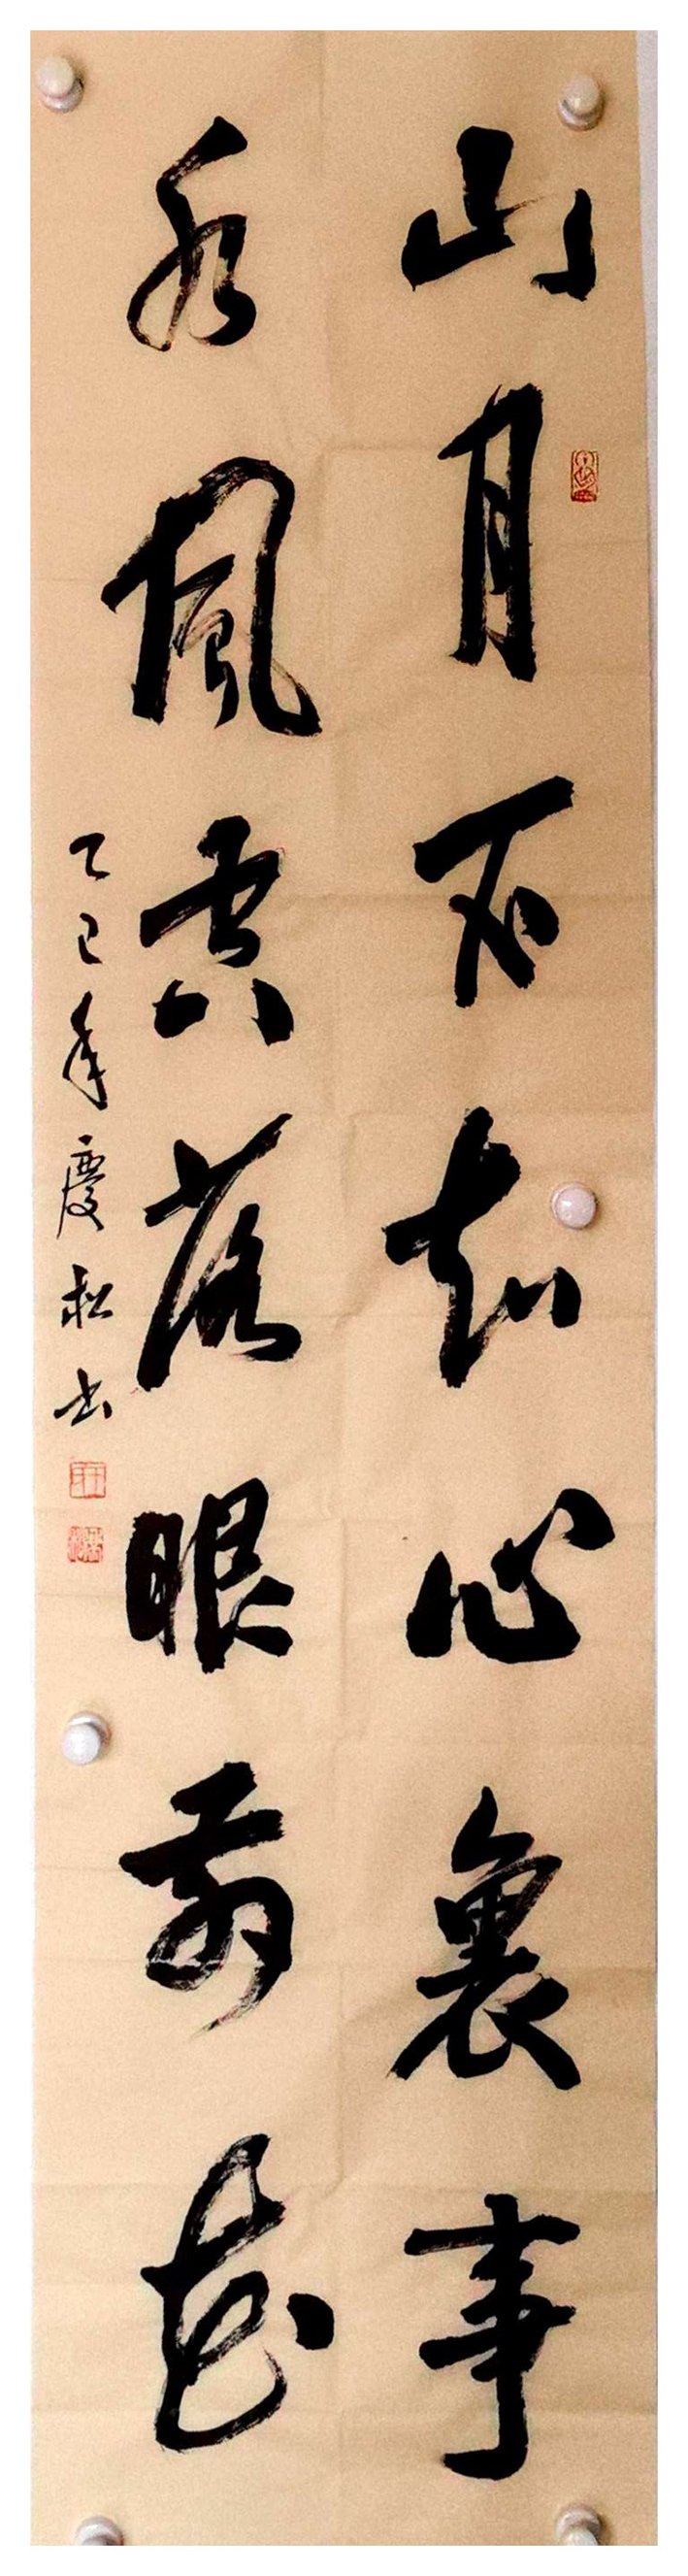 山月不知心裏事
水風空落眼前花
乙巳年慶松书